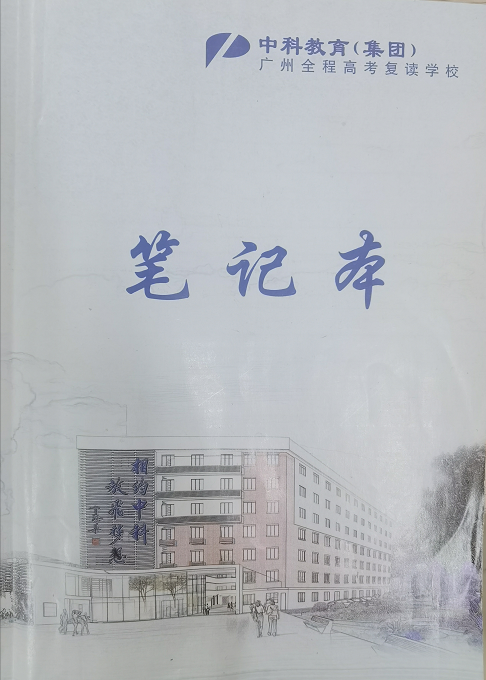 中科教育(集团)
广州全程高考复读学校
笔记本
相约中科
放飞梦想